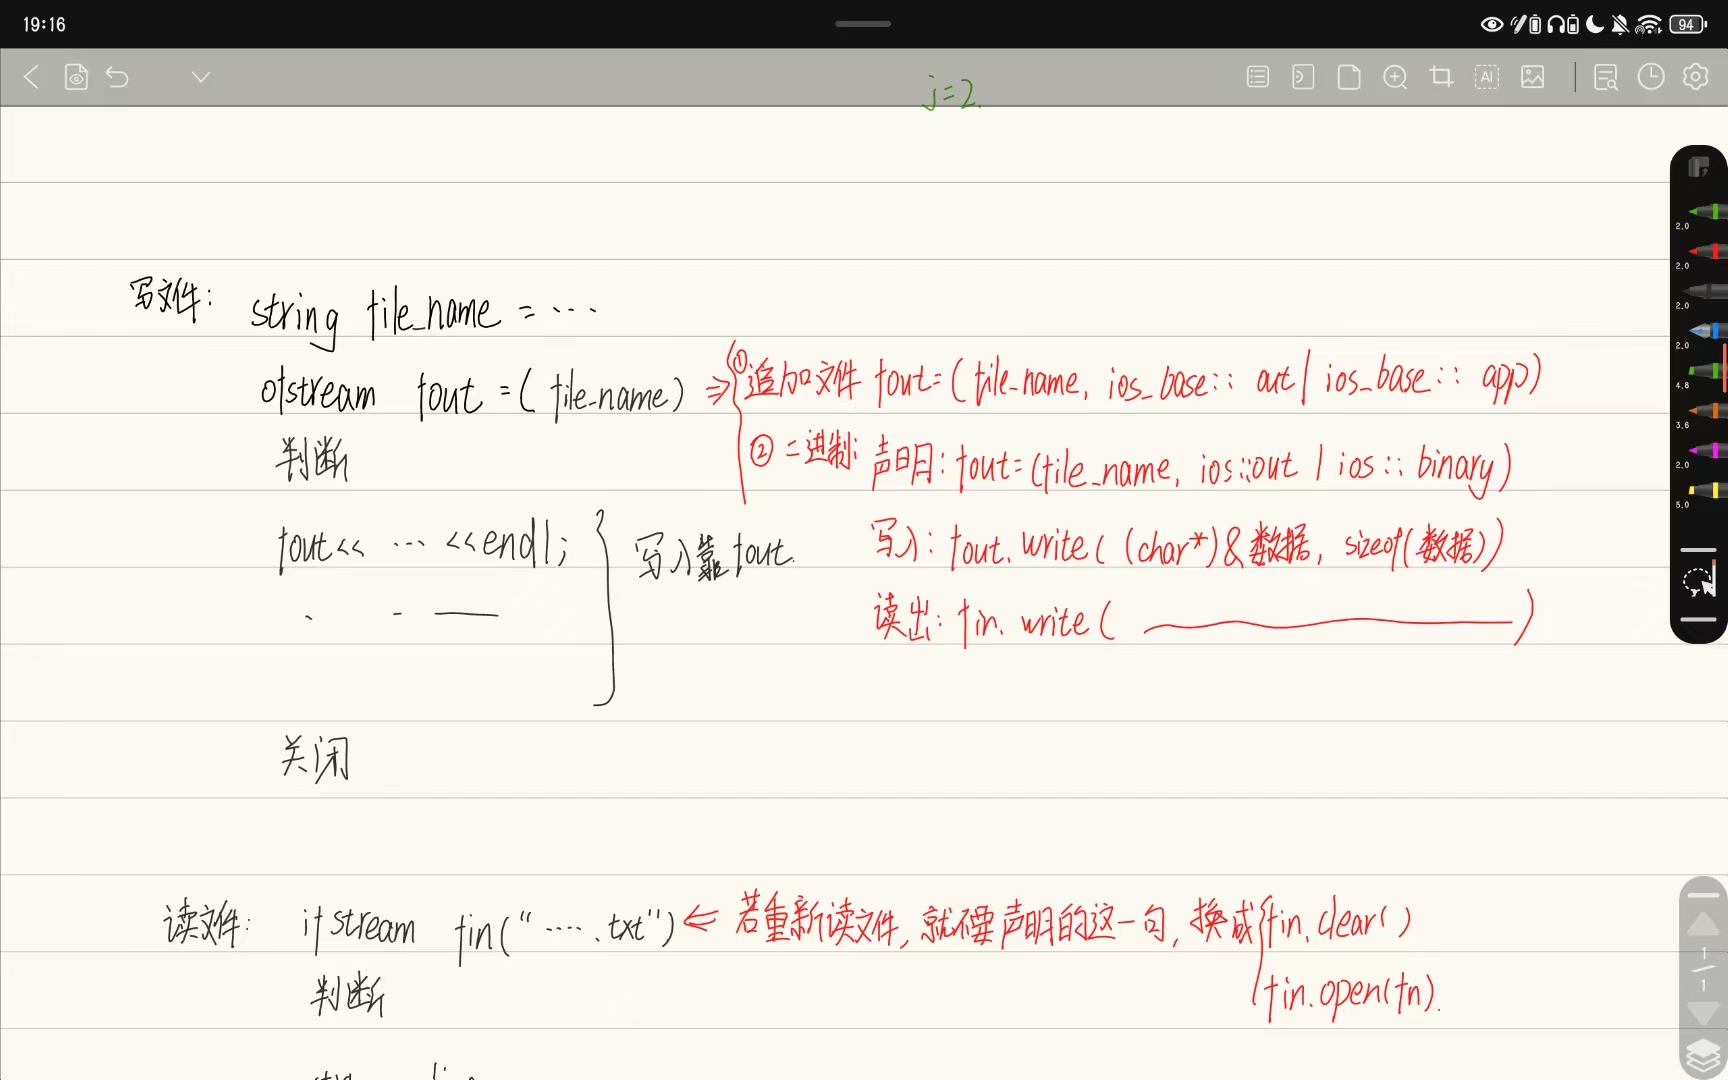 19:16
94
j=2.
写文件: string file_name = ...
ofstream fout =( file_name) ⇒ ①追加文件 fout=(file_name, ios_base:: out | ios_base:: app)
判断
②二进制: 声明: fout=(file_name, ios::out | ios:: binary)
fout<< ... <<endl; 写入靠fout.
写入: fout.write( (char*)&数据, sizeof(数据))
读出: fin. write( )
关闭
读文件: ifstream fin("....txt") ⇐ 若重新读文件, 就不要声明的这一句, 换成 fin.clear()
fin.open(fn).
判断
2.0
2.0
2.0
2.0
4.8
3.6
2.0
5.0
AI
1
1